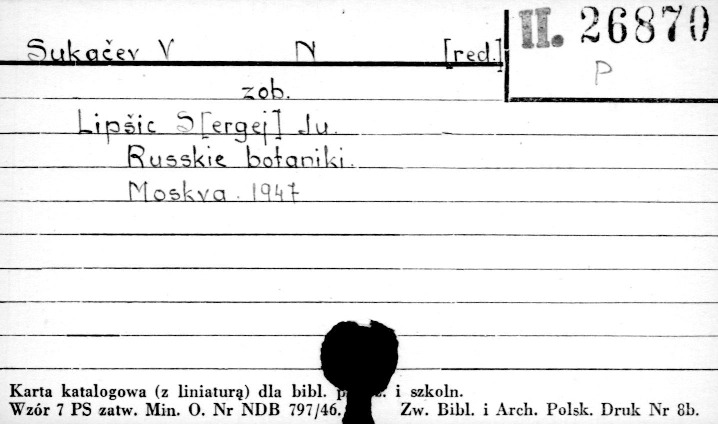 Sukačev V N [red.]
II. 26870
P
zob.
Lipšic S[ergej] Ju.
Russkie botaniki.
Moskva. 1947
Karta katalogowa (z liniaturą) dla bibl. i szkoln.
Wzór 7 PS zatw. Min. O. Nr NDB 797/46. Zw. Bibl. i Arch. Polsk. Druk Nr 8b.